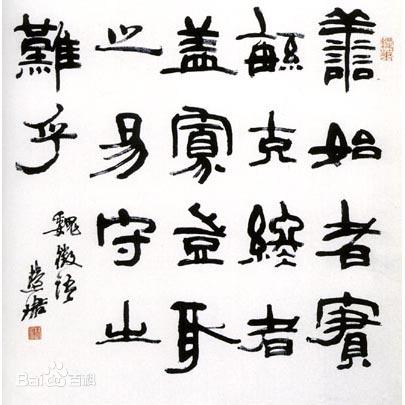 善始者實
繁克終者
蓋寡豈取
之易守之
難乎
魏徵語
Bai百科